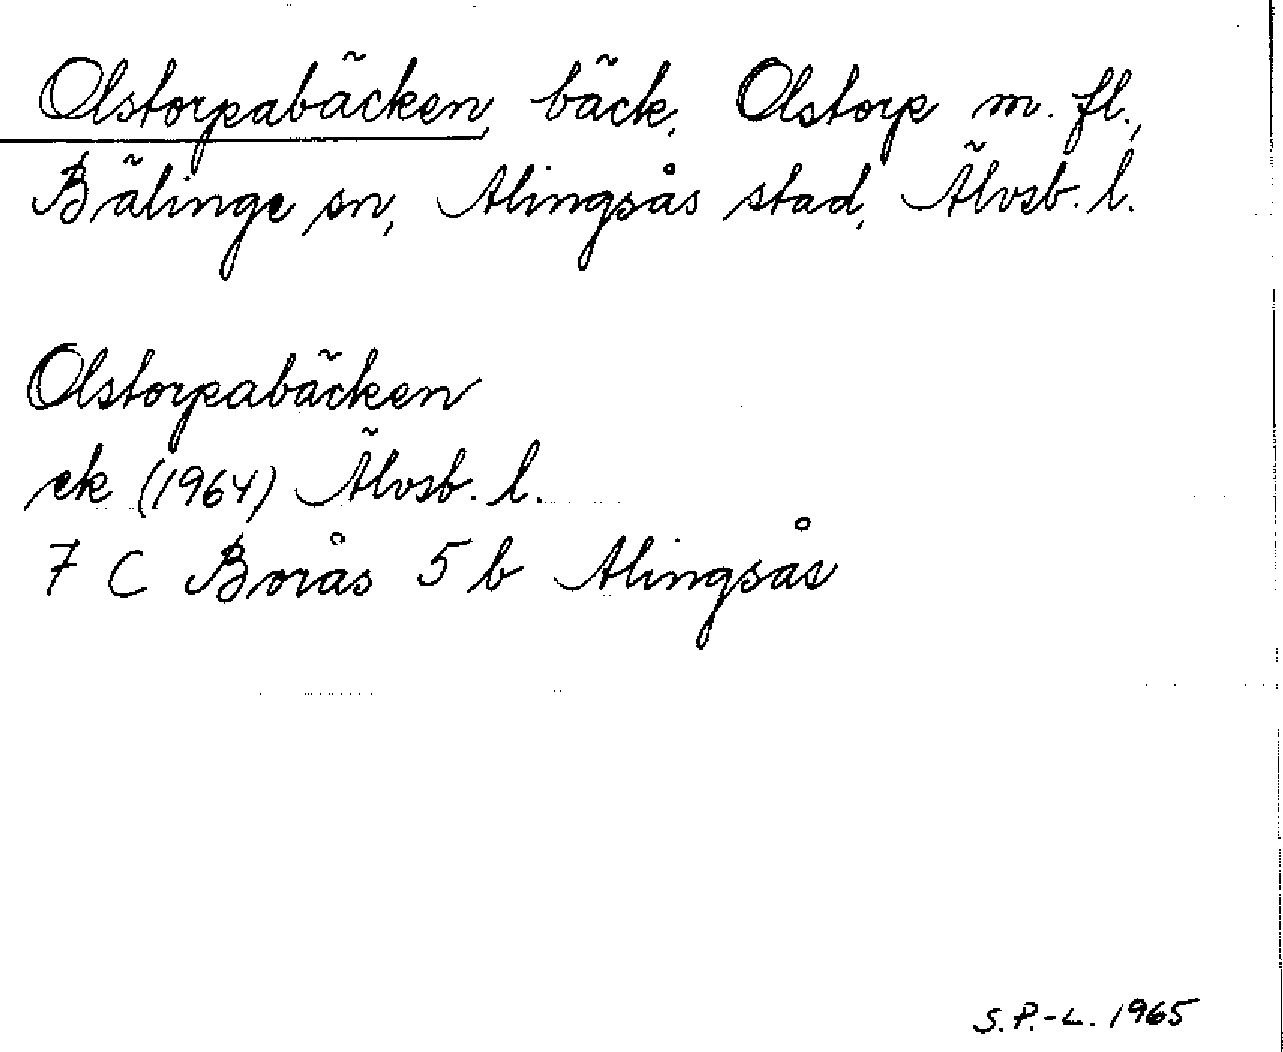 Olstorpabäcken, bäck, Olstorp m. fl.,
Bälinge sn, Alingsås stad, Älvsb. l.
Olstorpabäcken
ek (1964) Älvsb. l.
7 C Borås 5 b Alingsås
S.P.-L. 1965